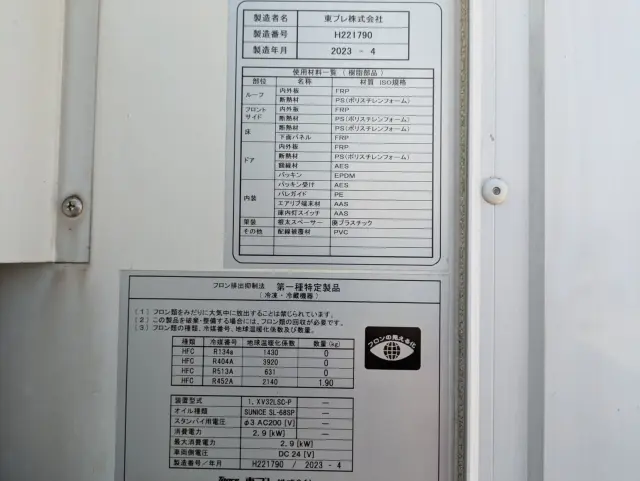 製造者名 東プレ株式会社
製造番号 H221790
製造年月 2023 - 4
使用材料一覧 (樹脂部品)
部位 名称 材質 ISO規格
ルーフ 内外板 FRP
断熱材 PS(ポリスチレンフォーム)
フロント サイド 内外板 FRP
断熱材 PS(ポリスチレンフォーム)
床 断熱材 PS(ポリスチレンフォーム)
下面パネル FRP
ドア 内外板 FRP
断熱材 PS(ポリスチレンフォーム)
額縁材 AES
パッキン EPDM
内装 パッキン受け AES
パレガイド PE
エアリブ端末材 AAS
庫内灯スイッチ AAS
架装 根太スペーサー 廃プラスチック
その他 配線被覆材 PVC
フロン排出抑制法 第一種特定製品
(冷凍・冷蔵機器)
(1) フロン類をみだりに大気中に放出することは禁じられています。
(2) この製品を破棄・整備する場合には、フロン類の回収が必要です。
(3) フロン類の種類、冷媒番号、地球温暖化係数及び数量。
フロンの見える化
種類 冷媒番号 地球温暖化係数 数量 (kg)
HFC R134a 1430 0
HFC R404A 3920 0
HFC R513A 631 0
HFC R452A 2140 1.90
装置型式 1. XV32LSC-P —
オイル種類 SUNICE SL-68SP —
スタンバイ用電圧 φ3 AC200 [V] —
消費電力 2.9 [kW] —
最大消費電力 2.9 [kW]
車両側電圧 DC 24 [V]
製造番号/年月 H221790 / 2023 - 4